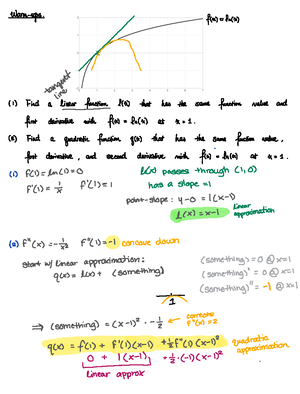 Warm-ups.
f(x) = ln(x)
tangent line
(1) Find a linear function l(x) that has the same function value and
first derivative with f(x) = ln(x) at x = 1.
(2) Find a quadratic function q(x) that has the same function value,
first derivative, and second derivative with f(x) = ln(x) at x = 1.
(1) f(1) = ln(1) = 0
f'(x) = 1/x f'(1) = 1
l(x) passes through (1,0)
has a slope = 1
point-slope: y-0 = 1(x-1)
l(x) = x-1 linear approximation
(2) f''(x) = -1/x² f''(1) = -1 concave down
Start w/ linear approximation:
q(x) = l(x) + (something)
(something) = 0 @ x=1
(something)' = 0 @ x=1
(something)'' = -1 @ x=1
1
⇒ (something) = (x-1)² · -1/2 ← corrects f''(x) = 2
q(x) = f(1) + f'(1)(x-1) + 1/2 f''(1)(x-1)² quadratic approximation
0 + 1(x-1) + 1/2·(-1)(x-1)²
linear approx